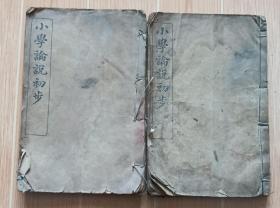 小學論說初步
小學論說初步